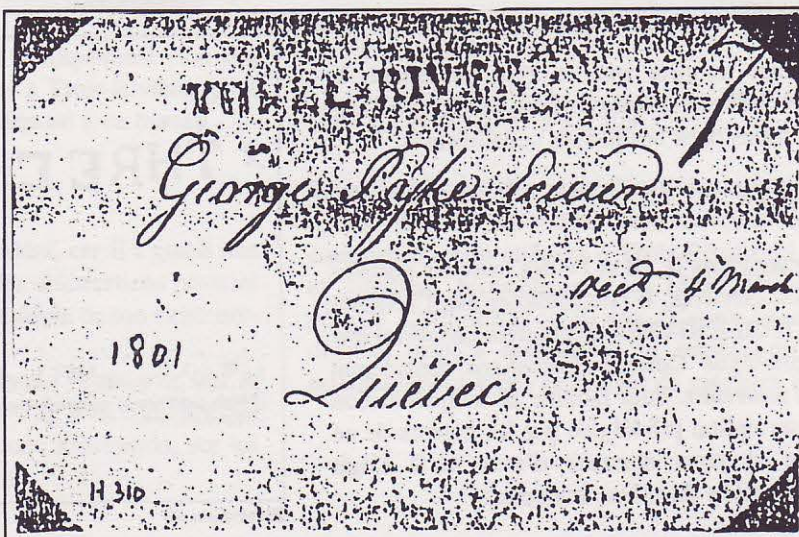 7
THREE-RIVERS
George Pyke Ecuier
recd 4 March
1801
Québec
H 310